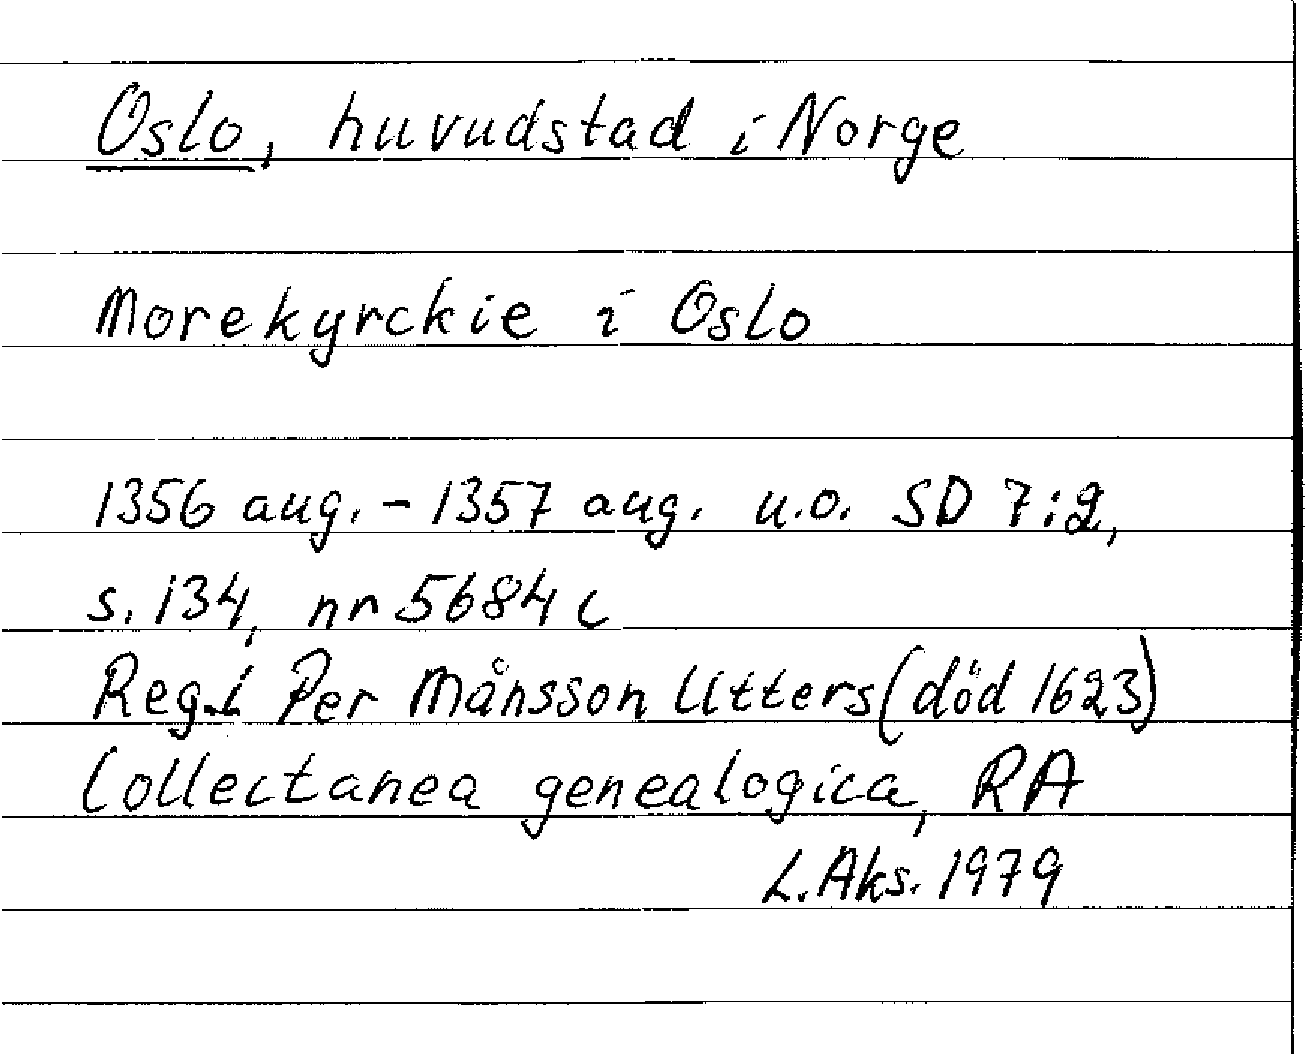 Oslo, huvudstad i Norge
Morekyrckie i Oslo
1356 aug. - 1357 aug. u.o. SD 7:2,
s. 134, nr 5684 c
Reg. i Per Månsson Utters (död 1623)
Collectanea genealogica, RA
L. Aks. 1979